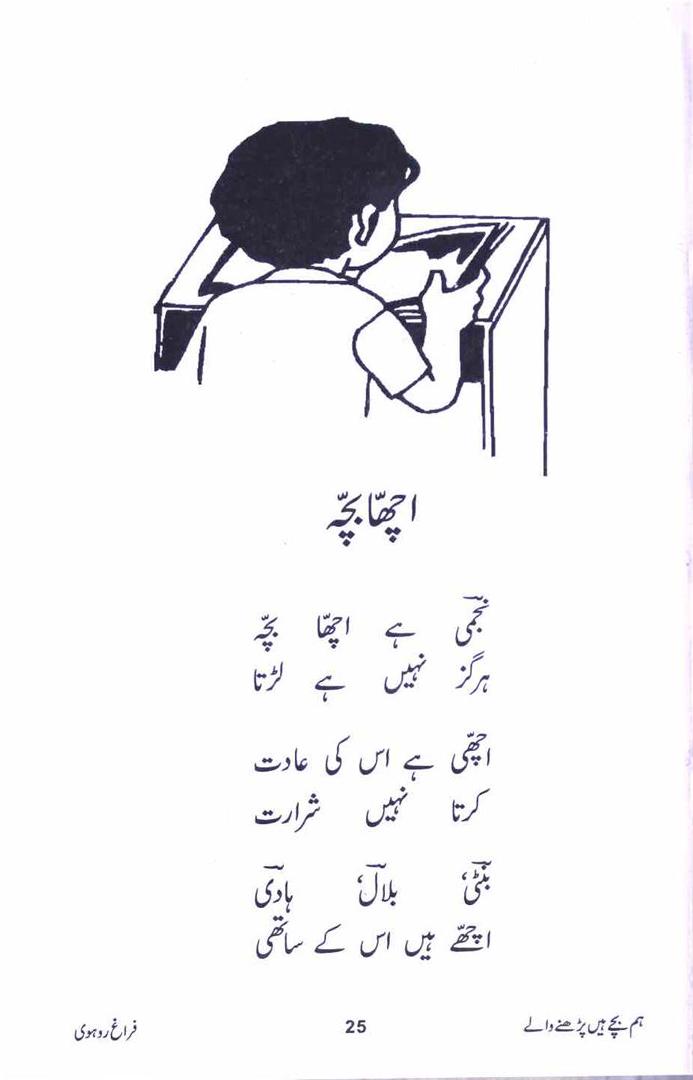 اچھّا بچّہ
نجمیؔ ہے اچھّا بچّہ
ہرگز نہیں ہے لڑتا
اچھّی ہے اس کی عادت
کرتا نہیں شرارت
بنٹیؔ، بلالؔ، ہادیؔ
اچھّے ہیں اس کے ساتھی
ہم بچے ہیں پڑھنے والے
25
فراغ روہوی